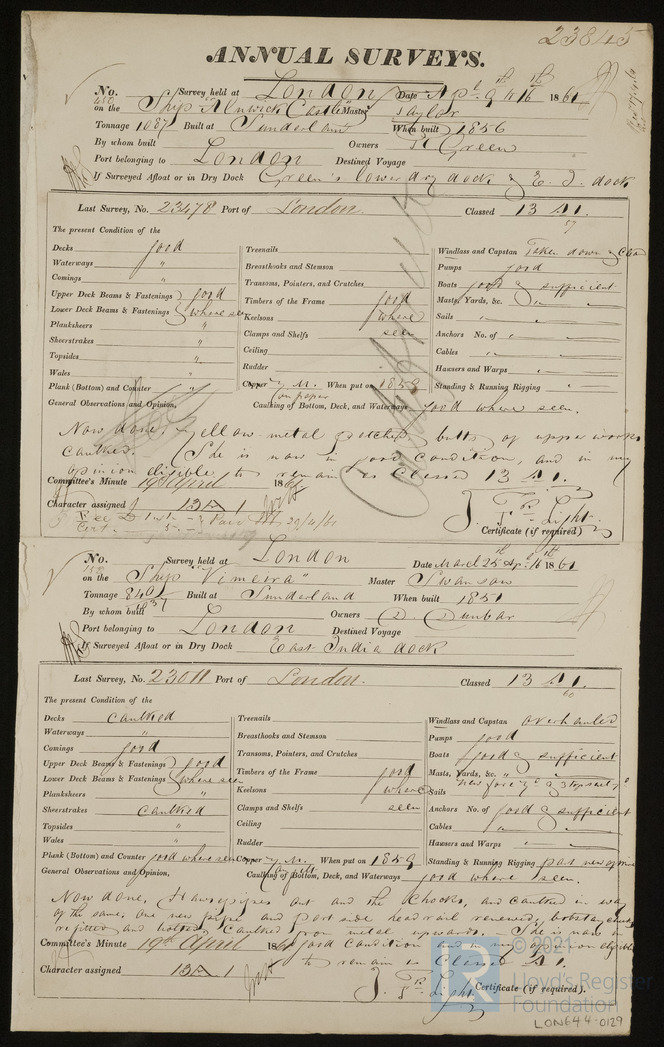 23845
ANNUAL SURVEYS.
No. Survey held at London Date Apl 9th & 16th 1861
on the Ship "Alnwick Castle" Master Taylor
Tonnage 1087 Built at Sunderland When built 1856
By whom built Owners R Green
Port belonging to London Destined Voyage
If Surveyed Afloat or in Dry Dock Green's lower dry dock & E. I. dock
Last Survey, No. 23478 Port of London. Classed 13 A1.
57
The present Condition of the
Decks good
Waterways "
Comings "
Upper Deck Beams & Fastenings good
Lower Deck Beams & Fastenings where seen
Planksheers "
Sheerstrakes "
Topsides "
Wales "
Plank (Bottom) and Counter "
General Observations and Opinion,
Treenails
Breasthooks and Stemson
Transoms, Pointers, and Crutches
Timbers of the Frame good
Keelsons where
Clamps and Shelfs seen
Ceiling
Rudder
Copper Y. M. When put on 1859
on paper
Caulking of Bottom, Deck, and Waterways good where seen.
Windlass and Capstan Taken down & Clean
Pumps good
Boats good & sufficient
Masts, Yards, &c. " "
Sails " "
Anchors No. of " "
Cables " "
Hawsers and Warps " "
Standing & Running Rigging "
Now done, Yellow metal patched, butts of upper works
caulked. She is now in good condition, and in my
opinion eligible to remain as Classed 13 A1.
Committee's Minute 19th April 1861
Character assigned 13 A 1
J. Tr. Light.
Certificate (if required)
Paid 22/4/61
No. Survey held at London Date March 25th Apl 16th 1861
on the Ship "Vimeira" Master Swanson
Tonnage 840 Built at Sunderland When built 1851
1037
By whom built Owners D. Dunbar
Port belonging to London Destined Voyage
If Surveyed Afloat or in Dry Dock East India dock
Last Survey, No. 23011 Port of London. Classed 13 A1.
60
The present Condition of the
Decks caulked
Waterways "
Comings good
Upper Deck Beams & Fastenings good
Lower Deck Beams & Fastenings where seen
Planksheers "
Sheerstrakes caulked
Topsides "
Wales "
Plank (Bottom) and Counter good where seen
General Observations and Opinion,
Treenails
Breasthooks and Stemson
Transoms, Pointers, and Crutches
Timbers of the Frame good
Keelsons where
Clamps and Shelfs seen
Ceiling
Rudder
Copper Y. M. When put on 1859
Caulking of Bottom, Deck, and Waterways good where seen.
Windlass and Capstan overhauled
Pumps good
Boats good & sufficient
Masts, Yards, &c. "
Sails
Anchors No. of good & sufficient
Cables " "
Hawsers and Warps " "
Standing & Running Rigging part new
Now done, Hawsepipes out and the Chocks, and caulked in way
of the same, one new pipe and port side headrail renewed, bobstay
refitted and bolted. Caulked from metal upwards. She is now in
good condition and in my opinion eligible
to remain as Classed A1.
Committee's Minute 19th April 1861
Character assigned 13 A 1
J. Tr. Light.
Certificate (if required).
© 2021
Lloyd's Register
Foundation
LON644-0129